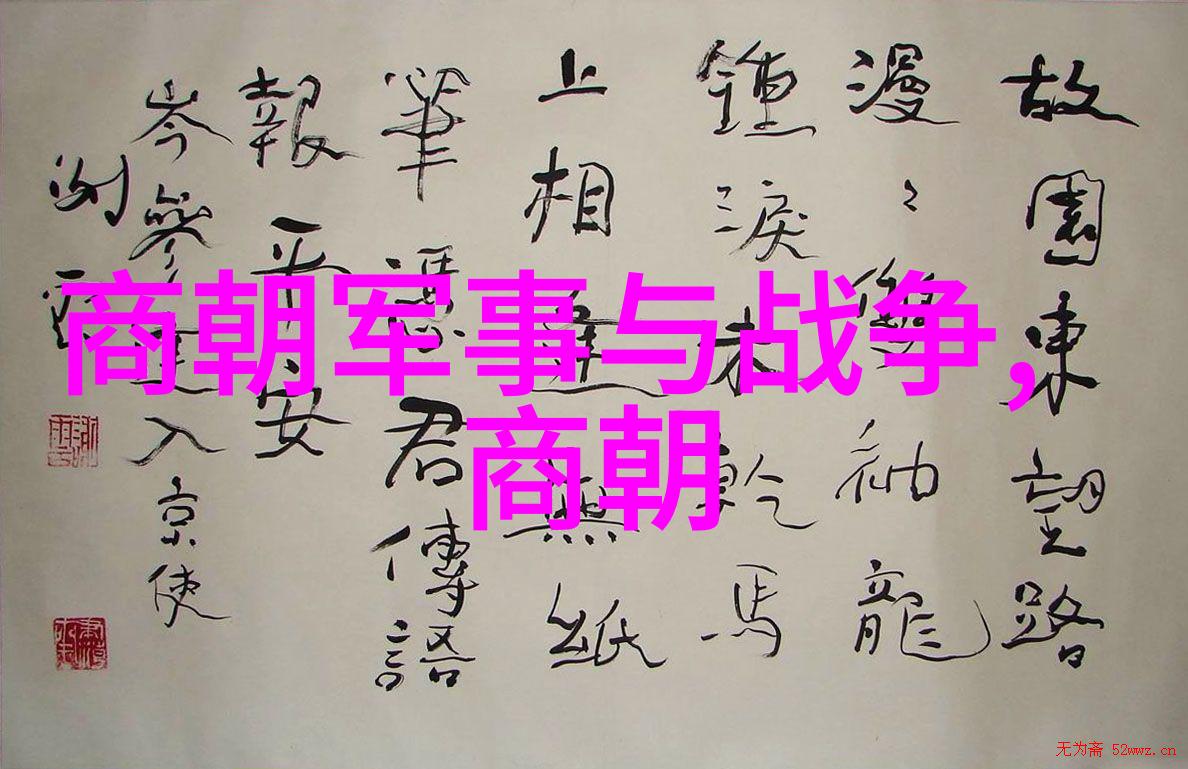 商朝军事与战争,
商朝
故園東望路
漫〻雙袖龍
鍾淚未乾馬
上相逢無紙
筆憑君傳語
報平安
岑參逢入京使
无为斋 52wwz.cn